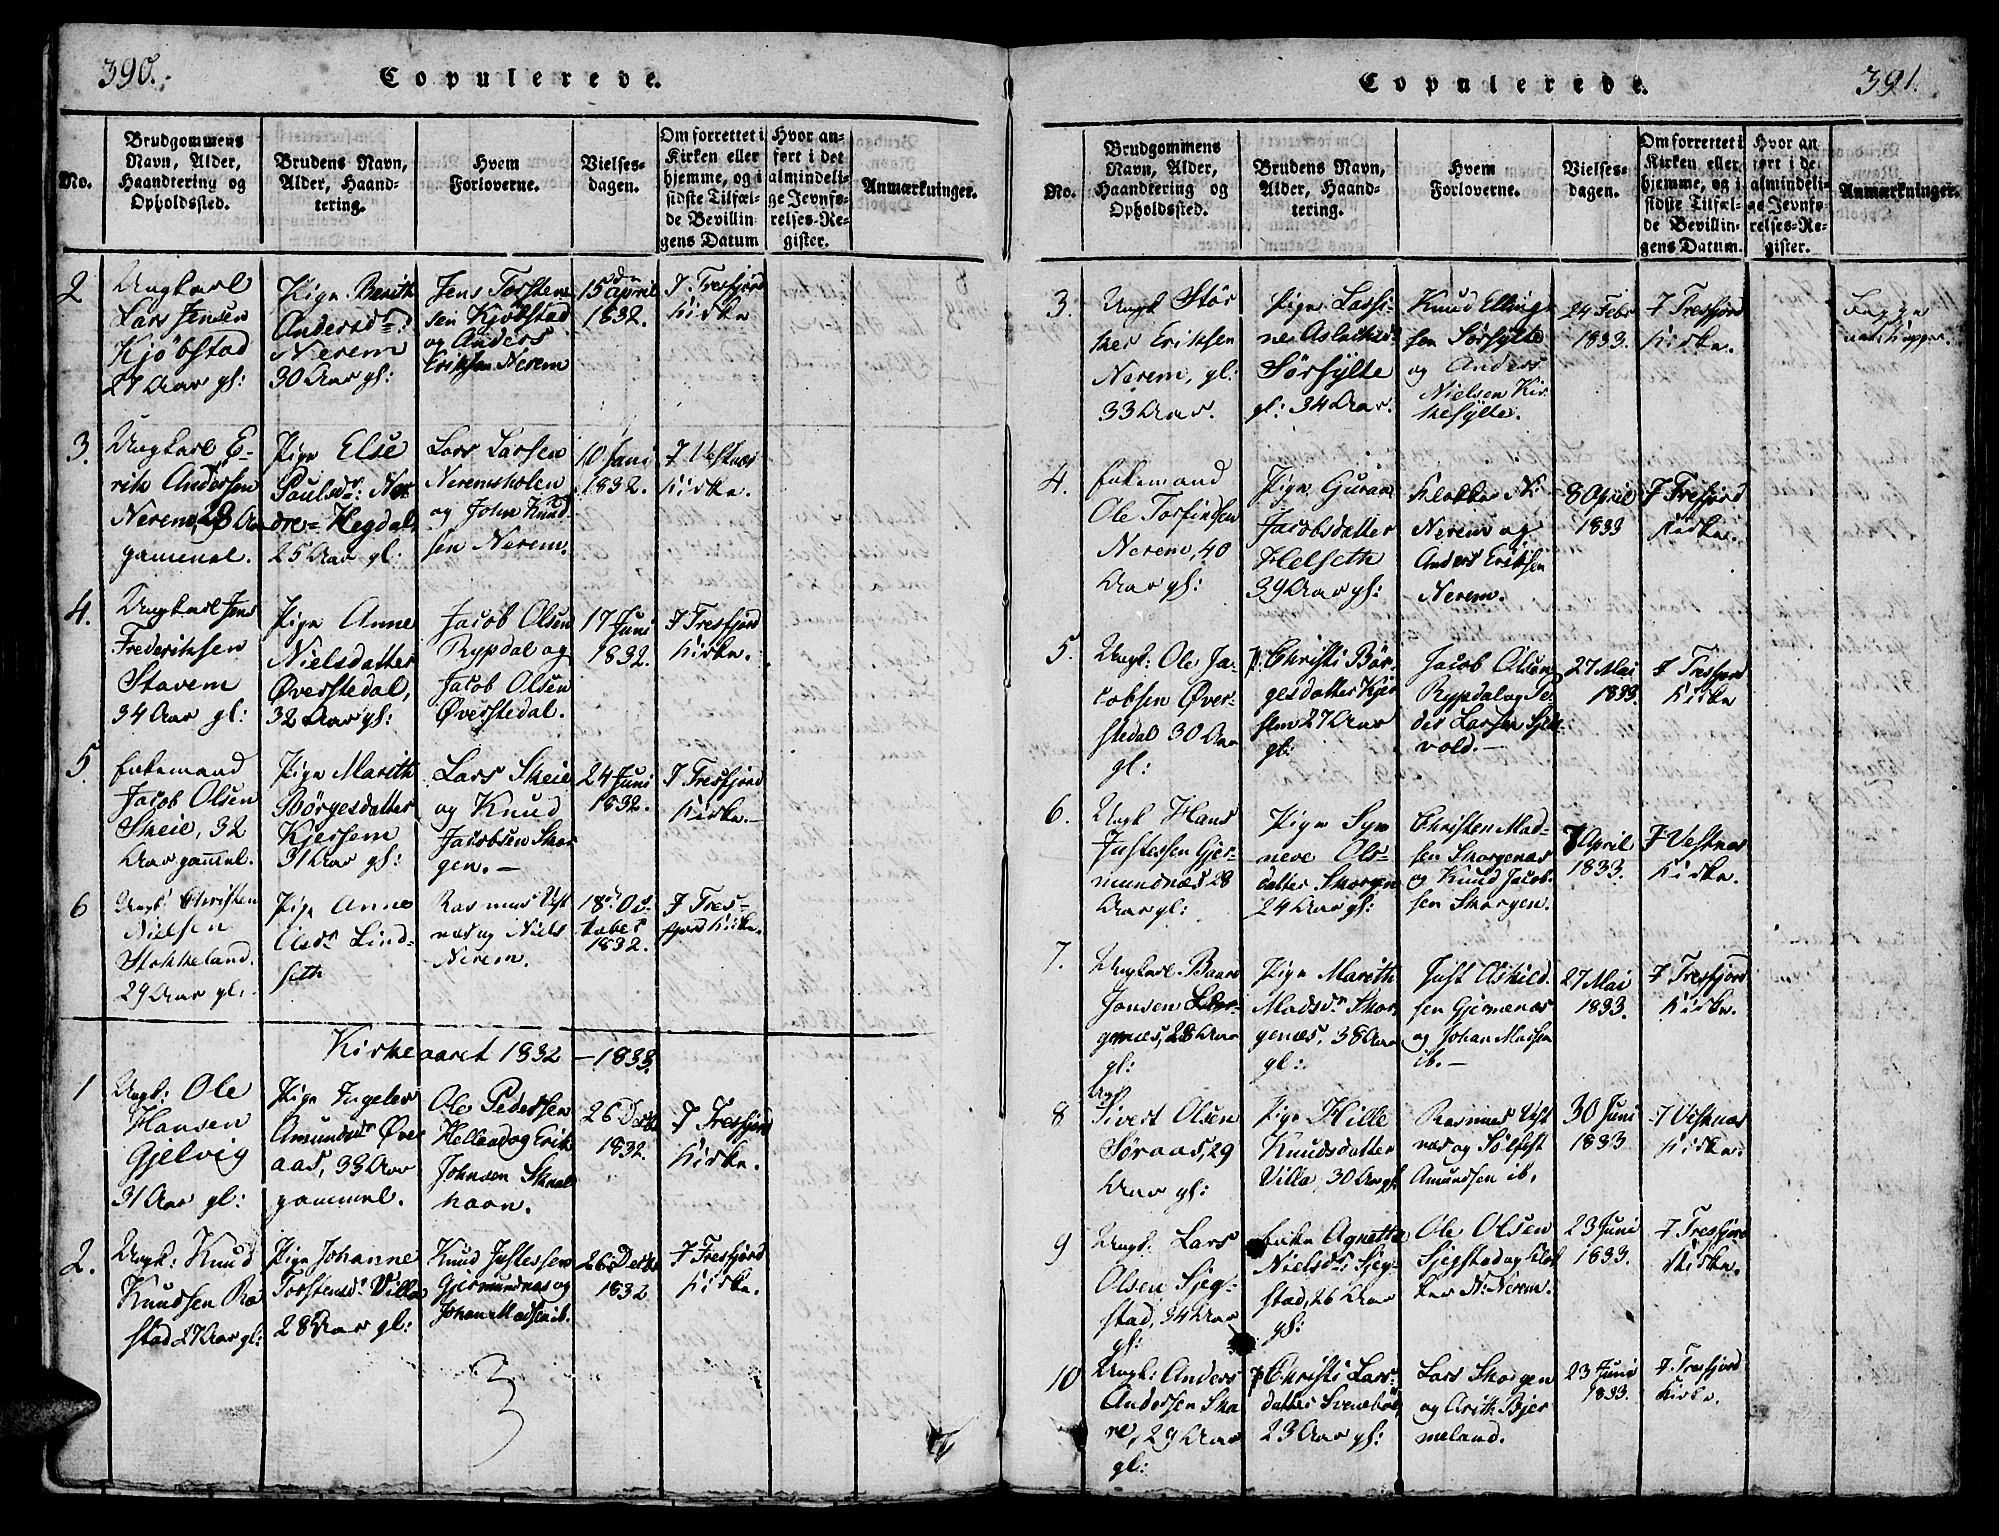 390.
Copulerede.
No.
Brudgommens
Navn, Alder,
Haandtering og
Opholdssted.
Brudens Navn,
Alder, Haand-
tering.
Hvem
Forloverne.
Vielses-
dagen.
Om forrettet i
Kirken eller
hjemme, og i
sidste Tilfæl-
de Bevillin-
gens Datum
Hvor an-
ført i det
almindeli-
ge Jevnfø-
relses-Re-
gister.
Anmærkninger.
2
Ungkarl
Lars Jensen
Kjöbstad
27 Aar gl:
Pige Berith
Andersdr:
Nerem
30 Aar gl:
Jens Torsten
sen Kjöbstad
og Anders
Eriksen Nerem
15de April
1832.
I Tresfjord
Kirke
3.
Ungkarl E-
rik Andersen
Nerem, 28 Aar
gammel.
Pige Else
Paulsdr: Ne
dre= Hegdal
25 Aar gl:
Lars Larsen
Neremsholen
og John Knud
sen Nerem.
10 Juni
1832.
I Vestnæs
Kirke.
4.
Ungkarl Jens
Frederiksen
Stavem
34 Aar gl:
Pige Anne
Nielsdatter
Øverstedal,
32 Aar gl:
Jacob Olsen
Rypdal og
Jacob Olsen
Øverstedal.
17 Juni
1832.
I Tresfjord
Kirke.
5
Enkemand
Jacob Olsen
Skeie, 32
Aar gammel.
Pige Marith
Börgesdatter
Kjersem
31 Aar gl:
Lars Skeie
og Knud
Jacobsen Skor
gen. –
24 Juni
1832.
I Tresfjord
Kirke. –
6
Ungk: Christen
Nielsen
Stokkeland.
29 Aar gl.
Pige Anne
Olsdr Lind-
seth
Rasmus Vest
næs og Niels
Nerem.
18de Oc-
tober
1832.
I Tres=
fjord Kirke.
Kirkeaaret 1832 – 1833.
1
Ungk: Ole
Hansen
Gjelvig
31 Aar gl:
Pige Ingeler
Amundsdr Øver
aas, 33 Aar
gammel.
Ole Pedersen
Helland og Erik
Johnsen Skaal
havn.
26 Decbr
1832.
I Tresfjord
Kirke.
2.
Ungk: Knud
Knudsen Ra
stad 27 Aar gl:
Pige Johanne
Torstensdr Villa
28 Aar gl:
Knud Justessen
Gjermundnæs og
Johan Madsen ib.
26 Decbr
1832
I Tresfjord
Kirke.
3
391.
Copulerede.
No.
Brudgommens
Navn, Alder,
Haandtering og
Opholdssted.
Brudens Navn,
Alder, Haand-
tering.
Hvem
Forloverne.
Vielses-
dagen.
Om forrettet i
Kirken eller
hjemme, og i
sidste Tilfæl-
de Bevillin-
gens Datum.
Hvor an
ført i de
almindeli-
ge Jevnfø-
relses-Re-
gister.
Anmærkninger.
3.
Ungk Stör
ker Eriksen
Nerem, gl:
33 Aar.
Pige Lassi-
ne Aslaksd:
Sörsylte
gl: 34 Aar.
Knud Elling
sen Sörsylte
og Anders
Nielsen Kir
kesylte.
24 Febr
1833.
I Tresfjord
Kirke.
Begge
4.
Enkemand
Ole Torfindsen
Nerem, 40
Aar gl:
Pige Guran
Jacobsdatter
Helseth
39 Aar gl:
Klokker N:
Nerem og
Anders Eriksen
Nerem.
8 April
1833
I Tresfjord
Kirke.
5.
Ungk: Ole Ja-
cobsen Øver-
stedal 30 Aar
gl:
P: Christi Bör
gesdatter Kjer
sem 27 Aar
gl:
Jacob Olsen
Rypdal og Pe
der Larsen Sjel
vold. –
27 Mai
1833.
I Tresfjord
Kirke
6.
Ungk Hans
Justessen Gjer
mundnæs 28
Aar gl:
Pige Syn
neve Ols-
datter Skorgen
24 Aar gl:
Christen Mad-
sen Skorgenæs
og Knud Jacob
sen Skorgen.
8 April
1833.
I Vestnæs
Kirke.
7.
Ungkarl Baard
Jonsen Skor-
genæs, 28 Aar
gl:
Pige Marith
Madsdr Skor
genæs, 38 Aar
gl:
Just Askild
sen Gjermenæs
og Johan Madsen
ib. –
27 Mai
1833.
I Tresfjord
Kirke.
8
Ungk
Sivert Olsen
Søraas, 29
Aar gl:
Pige Hille
Knudsdatter
Villa, 30 Aar gl
Rasmus Vest
næs og Sölfest
Amundsen ib.
30 Juni
1833
I Vestnæs
Kirke.
9
Ungk: Lars
Olsen Sjeg=
stad, 34 Aar
gl:
Enke Agnetha
Nielsdr: Sjeg-
stad, 26 Aar
gl:
Ole Olsen
Sjegstad og Klok
ker N: Nerem.
23 Juni
1833.
I Tresfjord
Kirke.
10
Ungk: Anders
Andersen Ska
re, 29 Aar
gl:
P Christi Lars-
datter Svenebö
23 Aar gl:
Lars Skorgen
og Arith Bjer
meland.
23 Juni
1833.
I Tresfjord
Kirke.